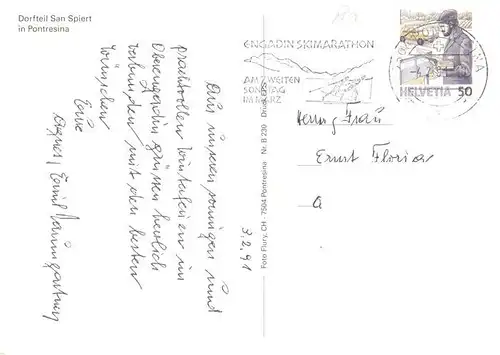 Dorfteil San Spiert
in Pontresina
ENGADIN SKIMARATHON
AM ZWEITEN
SONNTAG
IM MÄRZ
HELVETIA 50
Foto Flury, CH - 7504 Pontresina Nr. B 239
3.2.91
Aus unseren sonnigen und
prachtvollen Wintertagen im
Oberengadin grüssen herzlich
verbunden mit den besten
Wünschen
Eure
Agnes, Emil
Herrn, Frau
Ernst Florian
a